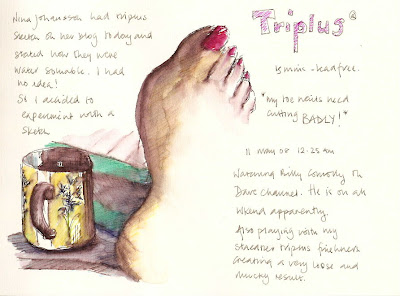 Nina Johansson had triplus
sketch on her blog today and
stated how they were
water soluable. I had
no idea!
So I decided to
experiment with a
sketch
Triplus
15 mins - lead free.
"my toe nails need
cutting BADLY!"
11 May 08 12.25 am
Watching Billy Connolly on
Dave Channel. He is on all
wkend apparently.
Also playing with my
staedtler triplus fineliners
creating a very loose and
mucky result.